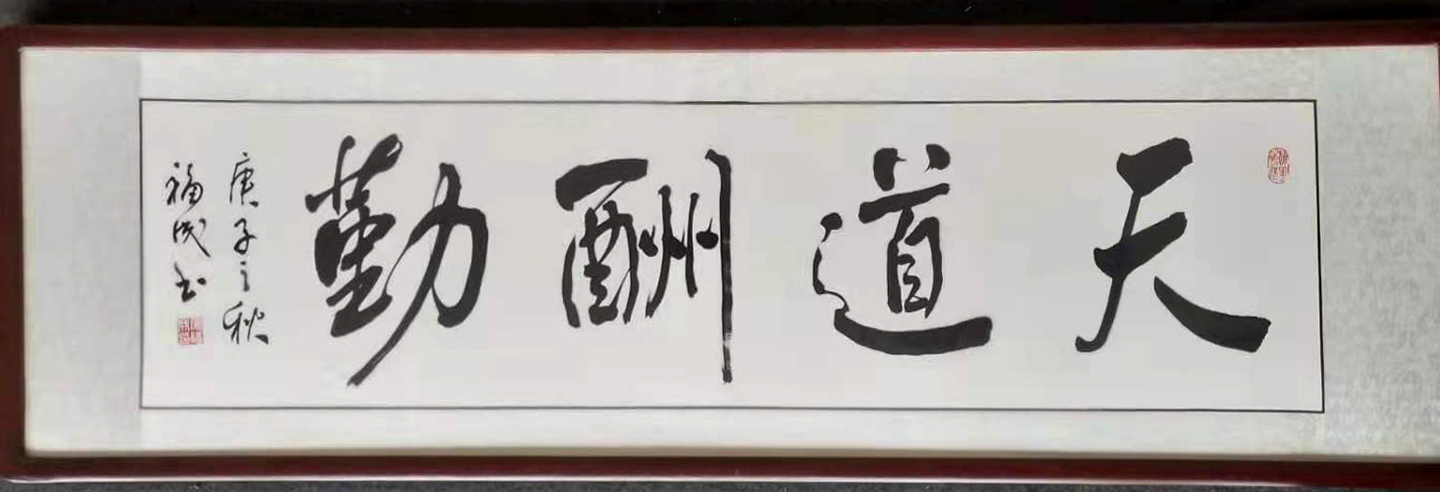 天道酬勤
庚子之秋
福成书